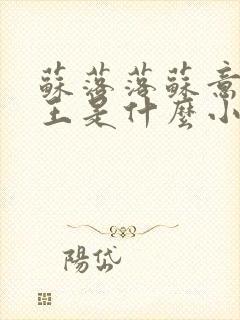 蘇落落蘇意
主是什麼小
陽岱